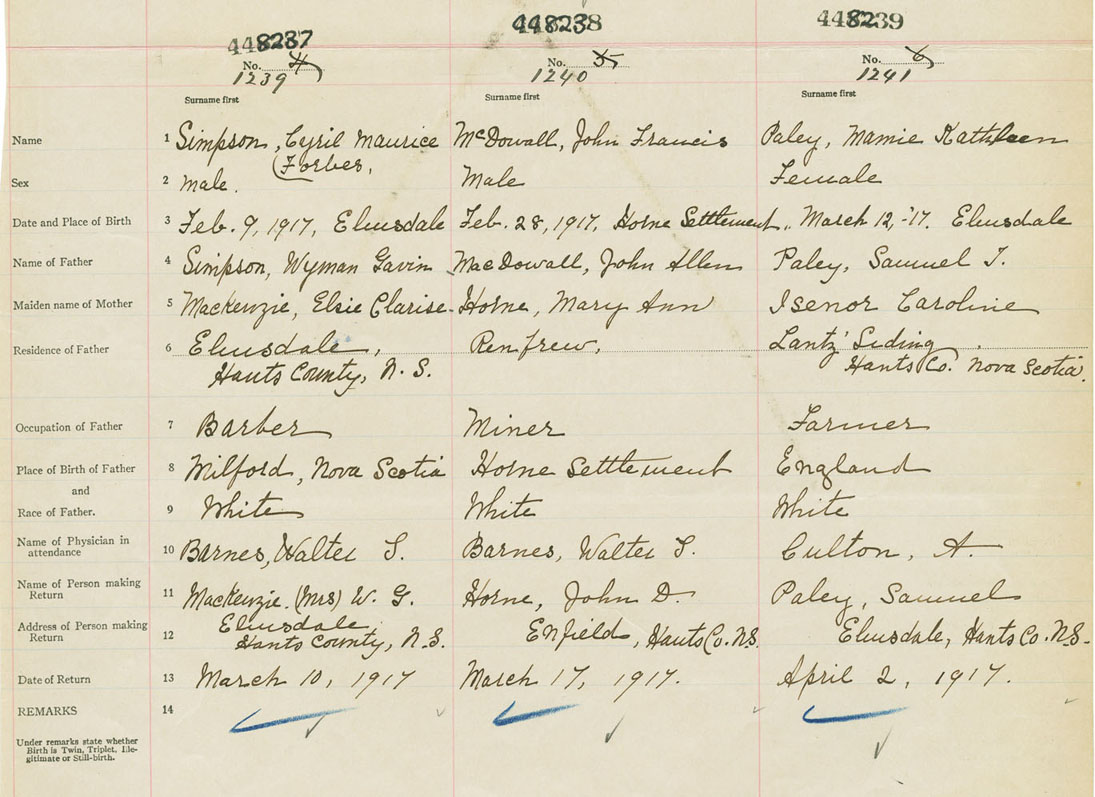 448237 448238 448239
No. 4 No. 5 No. 6
1239 1240 1241
Surname first Surname first Surname first
Name 1 Simpson, Cyril Maurice McDowall, John Francis Paley, Mamie Kathleen
(Forbes,
Sex 2 male. Male Female
Date and Place of Birth 3 Feb. 9, 1917, Elmsdale Feb. 28, 1917, Horne Settlement, March 12, -'17. Elmsdale
Name of Father 4 Simpson, Wyman Gavin MacDowall, John Allen Paley, Samuel T.
Maiden name of Mother 5 MacKenzie, Elsie Clarise Horne, Mary Ann Isenor Caroline
Residence of Father 6 Elmsdale, Renfrew, Lantz' Siding
Hants County, N. S. Hants Co. Nova Scotia.
Occupation of Father 7 Barber Miner Farmer
Place of Birth of Father 8 Milford, Nova Scotia Horne Settlement England
and
Race of Father. 9 White White White
Name of Physician in
attendance 10 Barnes, Walter S. Barnes, Walter S. Culton, A.
Name of Person making
Return 11 MacKenzie. (Mrs) W. G. Horne, John D. Paley, Samuel
Address of Person making
Return 12 Elmsdale, Enfield, Hants Co. N.S. Elmsdale, Hants Co. N.S.
Hants County, N.S.
Date of Return 13 March 10, 1917 March 17, 1917. April 2, 1917.
REMARKS 14
Under remarks state whether
Birth is Twin, Triplet, Ille-
gitimate or Still-birth.